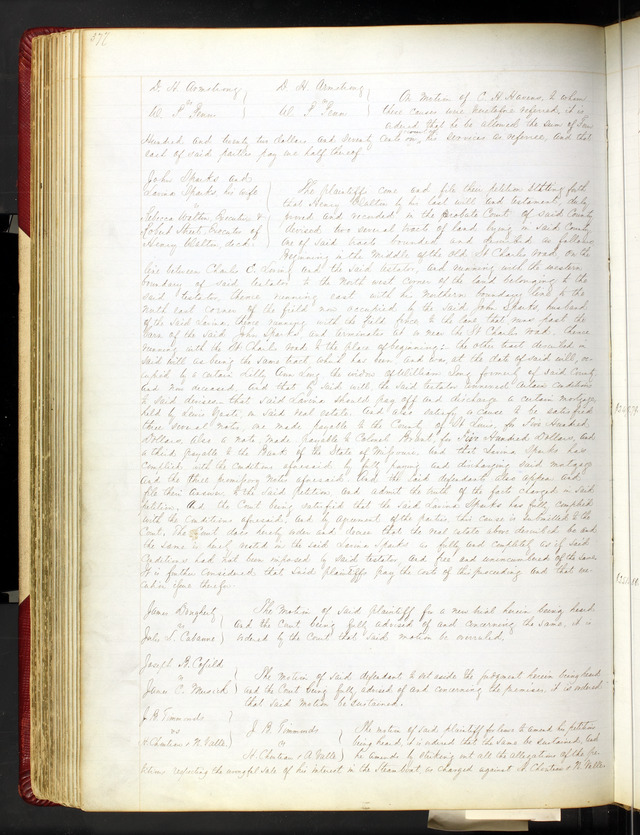 377
D. H. Armstrong D. H. Armstrong
vs vs On motion of C. H. Haven, to whom
W. P. Fenn W. P. Fenn these causes were heretofore referred, it is
ordered that to be allowed the sum of
Hundred and twenty two dollars and seventy cents on his services as referee, and that
each of said parties pay one half thereof
John Sparks and
Lavina Sparks, his wife The plaintiffs come and file their petition stating forth
vs that Henry Walton by his last will and testament, duly
Rebecca Walton Executrix & proved and recorded in the Probate Court of said County
Executor of devised two several tracts of land lying in said County
Henry Walton, decd. one of said tracts bounded and described as follows
Beginning in the middle of the old St Charles road, on the
line between Charles and the said testator, and running with the western
boundary of said testator to the north west corner of the land belonging to the
said testator, thence running east with his northern boundary line to the
north east corner of the field now occupied by the said John Sparks, husband
of the said Lavina, thence running with the field fence and the lane that runs past the
barn of the said John Sparks and terminates at or near the St Charles road. thence
running with the St Charles road to the place of beginning: the other tract described in
said will as being the same tract which has been, and was at the date of said will, oc-
cupied by a certain Ann Long the widow of William Long formerly of said County,
and now deceased. And that to said with the said testator annexed certain conditions
to said devises. that said Lavina should pay off and discharge a certain mortgage,
held by Lewis on said real estate. And also satisfy or cause to be satisfied
three several notes, one made payable to the County of St Louis, for Five Hundred
Dollars, Also a note, made payable to for Five Hundred Dollars, and
a third, payable to the Bank of the State of Missouri. And that Lavina Sparks has
complied with the conditions aforesaid by fully paying and discharging said mortgage
and the three promissory notes aforesaid. And the said defendants also appear and
file their answer to the said petition and admit the truth of the facts charged in said
petition. And the Court being satisfied that the said Lavina Sparks has fully complied
with the conditions aforesaid; and by agreement of the parties, this cause is submitted to the
Court. The Court does hereby order and decree that the real estate above described be and
the same is hereby vested in the said Lavina Sparks as fully and completely as if said
conditions had not been imposed by said testator, and free and unincumbered of the same.
It is further considered that said plaintiffs pay the costs of this proceeding and that exe-
cution issue therefor.
James The motion of said plaintiff for a new trial herein being heard
vs and the Court being fully advised of and concerning the same, it is
John S. Cabanne ordered by the Court that said motion be overruled.
Joseph H. The motion of said defendant to set aside the judgment herein being heard
vs and the Court being fully advised of and concerning the premises, it is ordered
James C. that said motion be sustained.
J. B. Simmonds
vs J. B. Simmonds The motion of said plaintiff for leave to amend his petition
& N. Valle vs being heard, it is ordered that the same be sustained, and
Valle he amends by striking out all the allegations of the pe-
tition respecting the wrongful sale of his interest in the Steam boat as charged against & N. Valle.